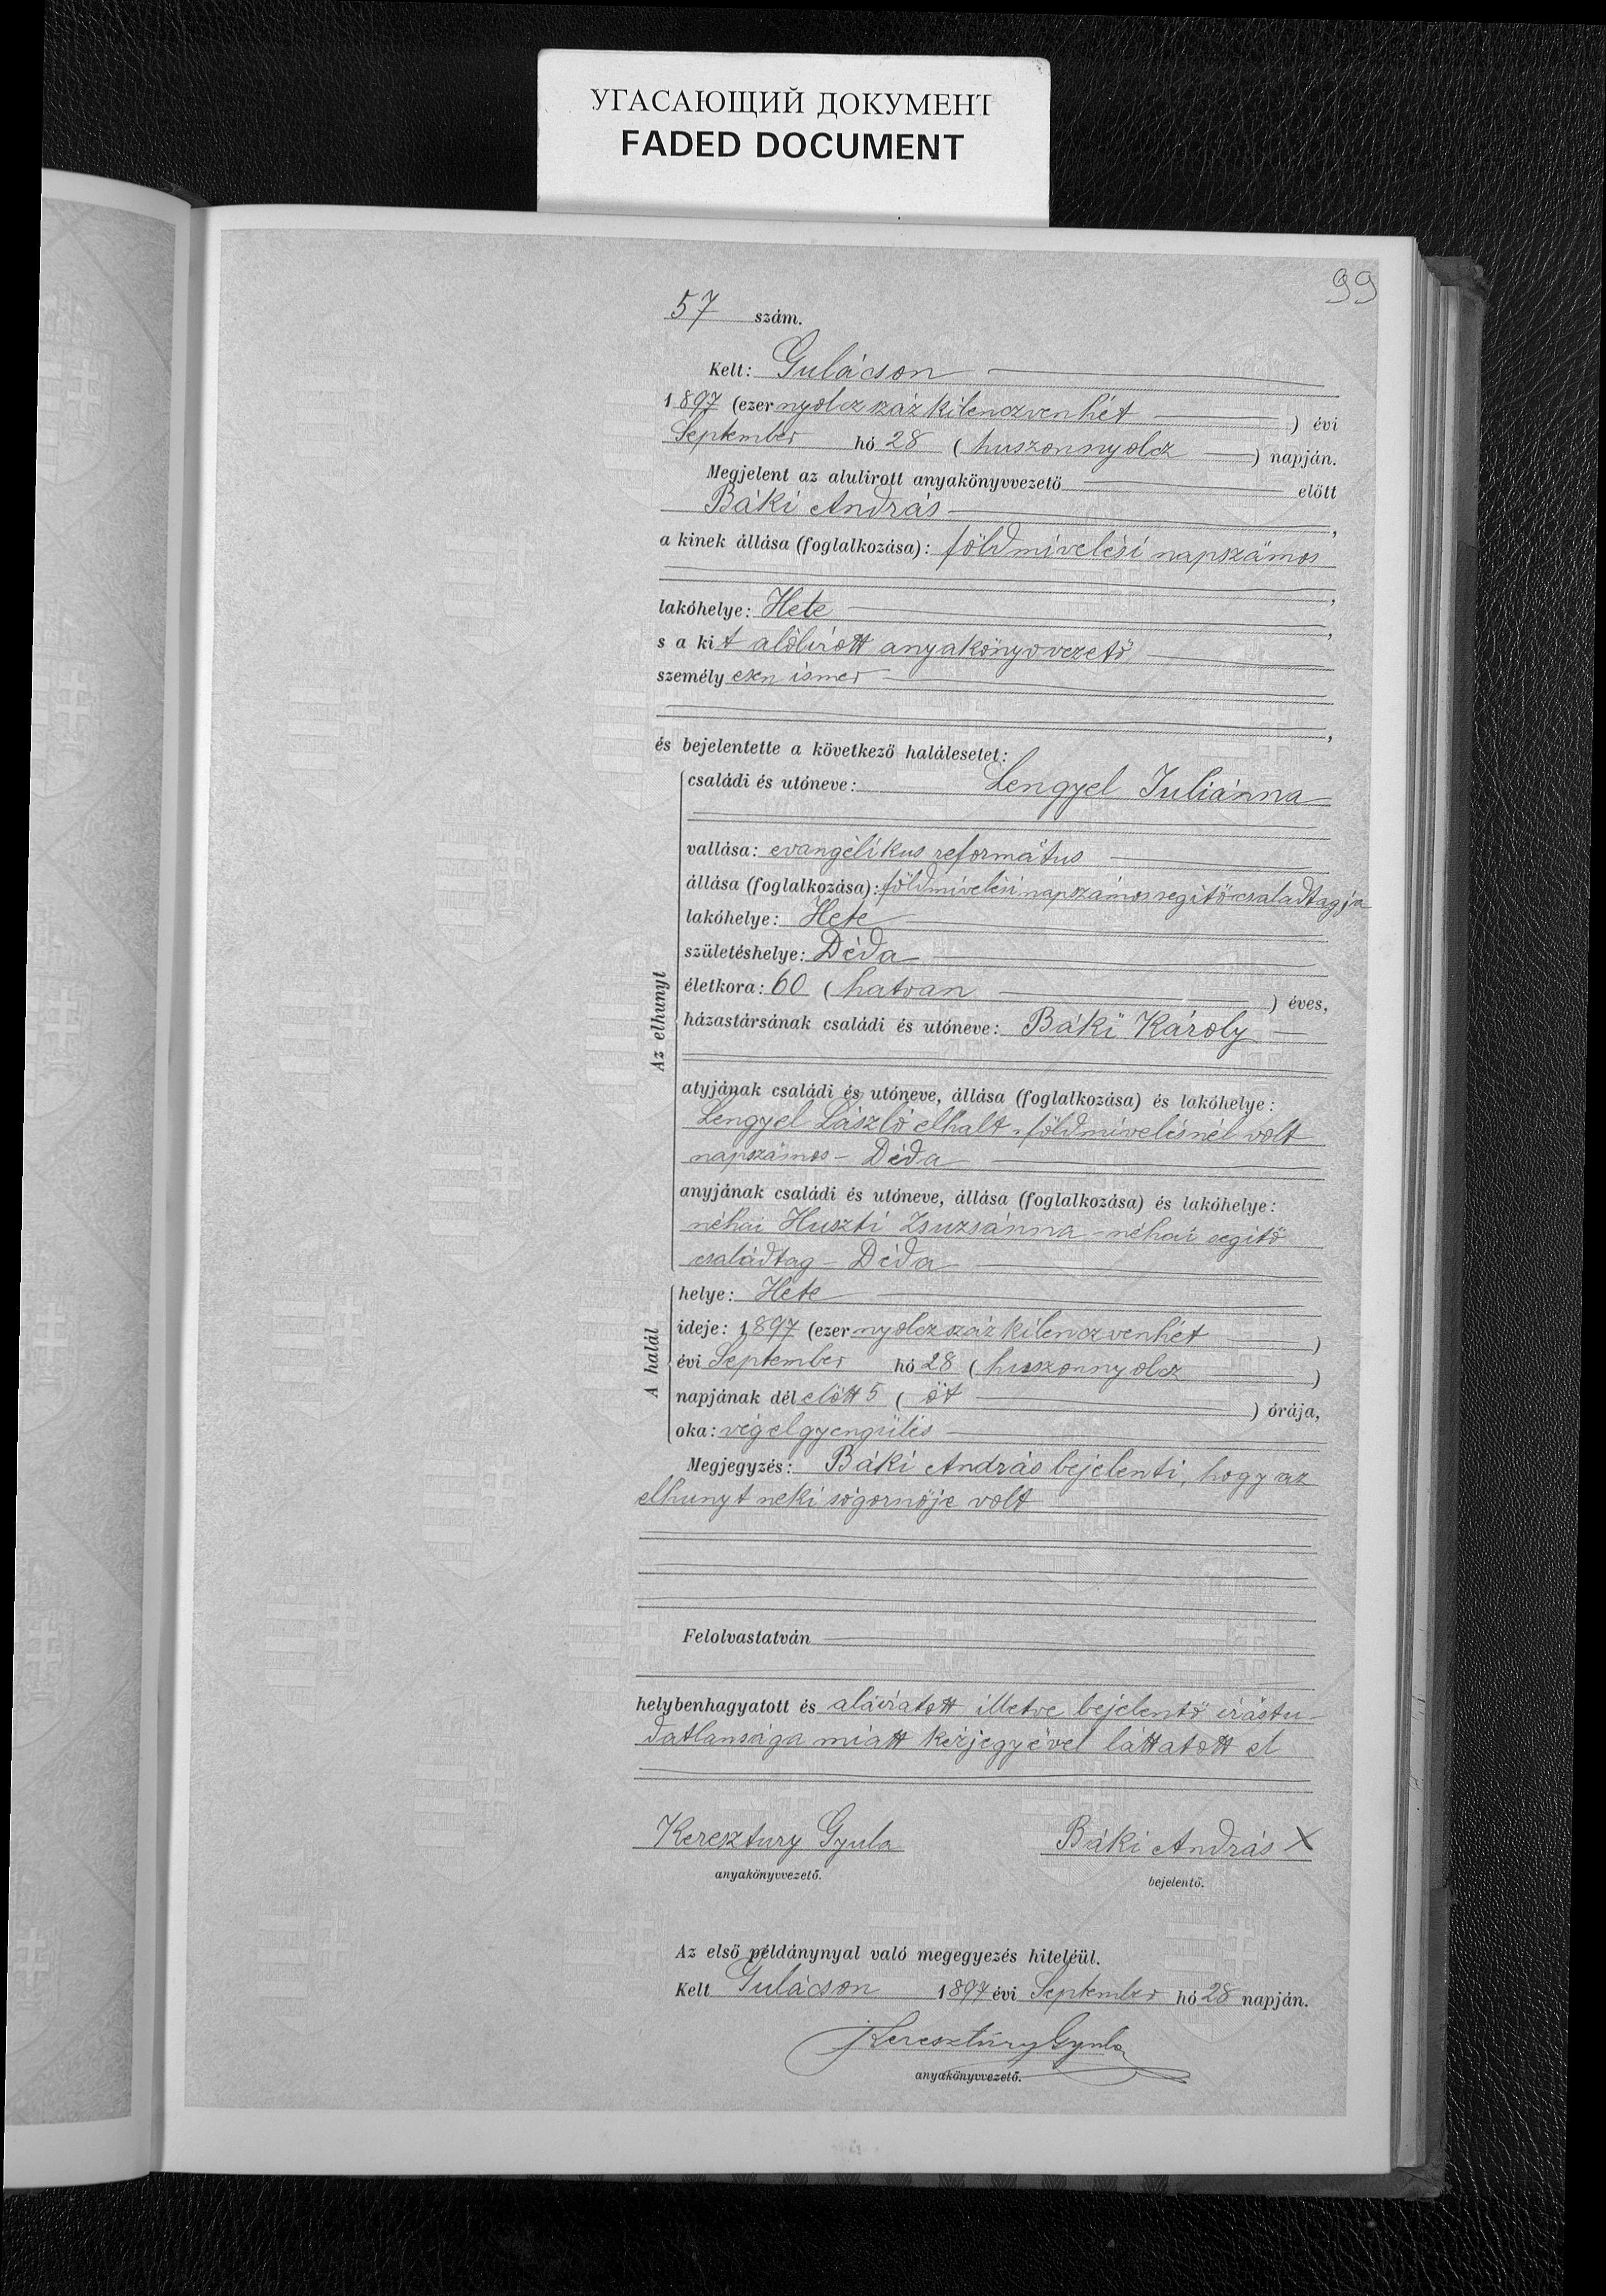 УГАСАЮЩИЙ ДОКУМЕНТ
FADED DOCUMENT
99
57 szám.
Kelt: Gulácson
1897 (ezer nyolcz száz kilenczvenhét) évi
September hó 28 (huszonnyolcz) napján.
Megjelent az alulirott anyakönyvvezető előtt
Báki András,
a kinek állása (foglalkozása): földmívelési napszámos
,
lakóhelye: Hete,
s a kit alólírott anyakönyvvezető
személyesen ismer
,
és bejelentette a következő halálesetet:
Az elhunyt
családi és utóneve: Lengyel Juliánna
vallása: evangélikus református
állása (foglalkozása): földmívelési napszámos segitő családtagja
lakóhelye: Hete
születéshelye: Déda
életkora: 60 (hatvan) éves,
házastársának családi és utóneve: Báki Károly
atyjának családi és utóneve, állása (foglalkozása) és lakóhelye:
Lengyel László elhalt - földmívelésnél volt
napszámos - Déda
anyjának családi és utóneve, állása (foglalkozása) és lakóhelye:
néhai Huszti Zsuzsánna - néhai segitő
családtag - Déda
A halál
helye: Hete
ideje: 1897 (ezer nyolcz száz kilenczvenhét)
évi September hó 28 (huszonnyolcz)
napjának dél előtt 5 (öt) órája,
oka: végelgyengülés
Megjegyzés: Báki András bejelenti, hogy az
elhunyt neki sógornője volt
Felolvastatván
helybenhagyatott és aláiratott illetve bejelentő irástu-
datlansága miatt kézjegyével láttatott el
Keresztury Gyula Báki András X
anyakönyvvezető. bejelentő.
Az első példánynyal való megegyezés hiteléül.
Kelt Gulácson 1897 évi September hó 28 napján.
Keresztúry Gyula
anyakönyvvezető.